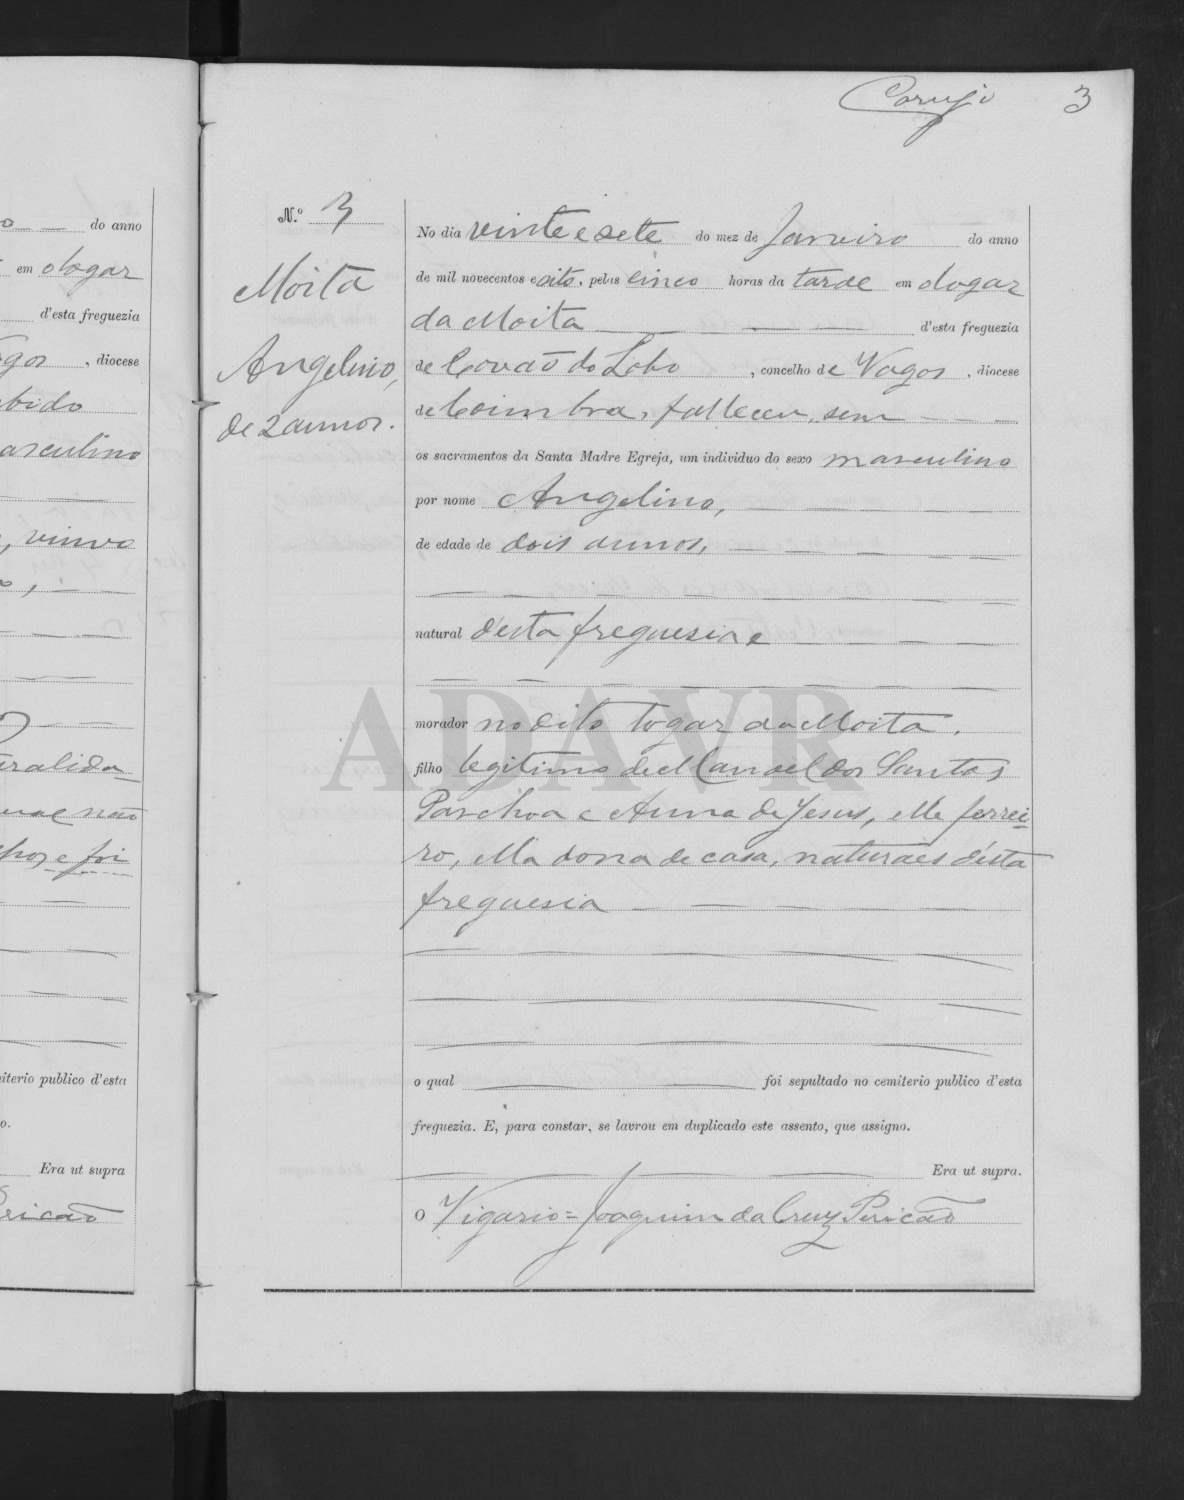 do anno
em o logar
d'esta freguezia
, diocese
masculino
, viuvo
não
e foi
cemiterio publico d'esta
Era ut supra
Pericão
3
N.º 3
Moita
Angelino,
de 2 annos.
No dia vinte e sete do mez de Janeiro do anno
de mil novecentos e oito, pelas cinco horas da tarde em o logar
da Moita d'esta freguezia
de Covão do Lobo, concelho de Vagos, diocese
de Coimbra, falleceu, sem
os sacramentos da Santa Madre Egreja, um individuo do sexo masculino
por nome Angelino,
de edade de dois annos,
natural d'esta freguesia e
morador no dito logar da Moita.
filho legitimo de Manoel dos Santos
Paschoa e Anna de Jesus, elle ferrei-
ro, ella dona de casa, naturaes d'esta
freguesia
o qual foi sepultado no cemiterio publico d'esta
freguezia. E, para constar, se lavrou em duplicado este assento, que assigno.
Era ut supra.
O Vigario = Joaquim da Cruz Pericão
ADAVR